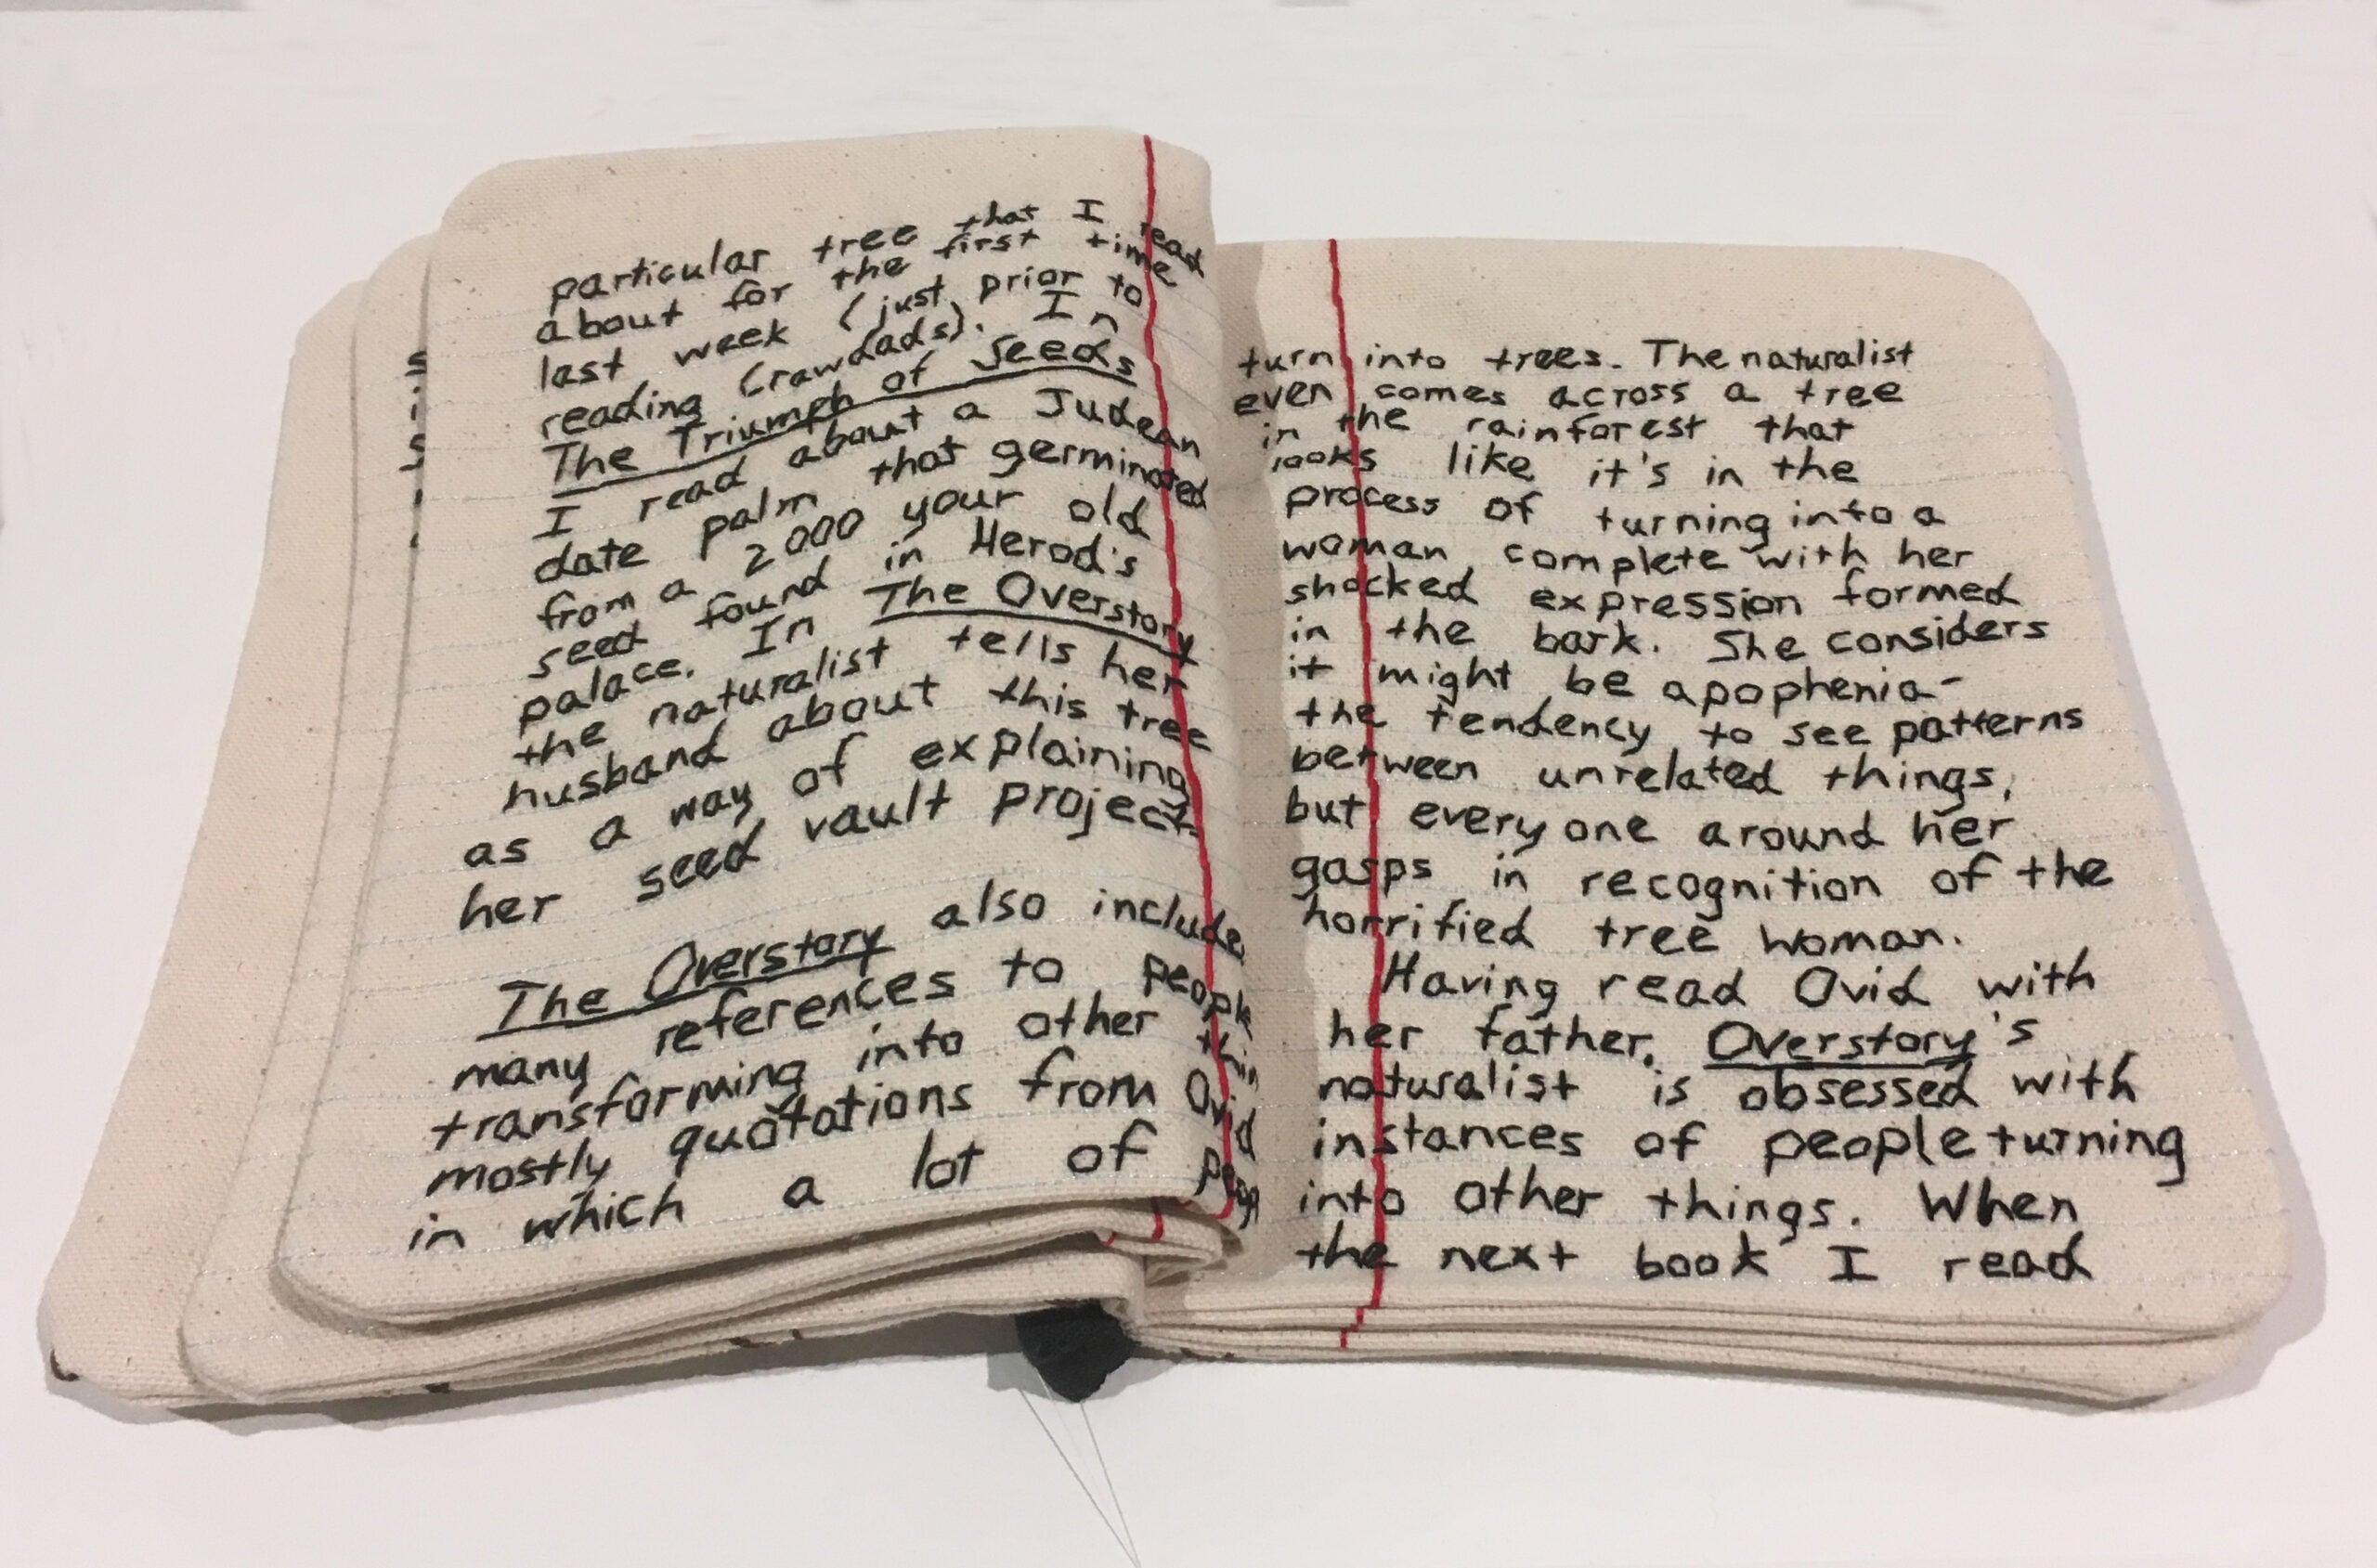 particular tree that I read
about for the first time
last week (just prior to
reading Crawdads). In
The Triumph of Seeds
I read about a Judean
date palm that germinated
from a 2000 your old
seed found in Herod's
palace. In The Overstory
the naturalist tells her
husband about this tree
as a way of explaining
her seed vault project.
The Overstory also include
many references to people
transforming into other thin
mostly quotations from Ovid
in which a lot of peop
turn into trees. The naturalist
even comes across a tree
in the rainforest that
looks like it's in the
process of turning into a
woman complete with her
shocked expression formed
in the bark. She considers
it might be apophenia-
the tendency to see patterns
between unrelated things,
but everyone around her
gasps in recognition of the
horrified tree woman.
Having read Ovid with
her father, Overstory's
naturalist is obsessed with
instances of people turning
into other things. When
the next book I read